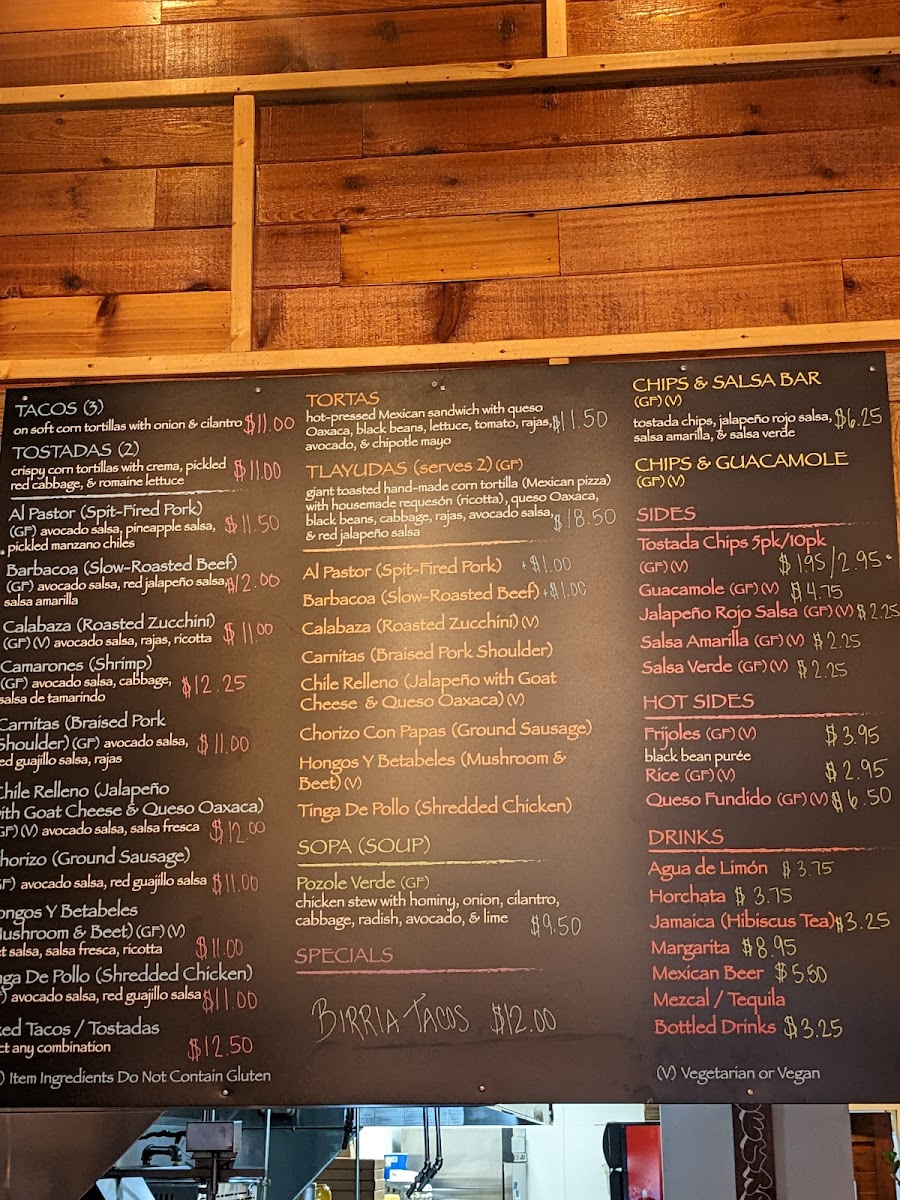 TACOS (3)
on soft corn tortillas with onion & cilantro $11.00
TOSTADAS (2)
crispy corn tortillas with crema, pickled
red cabbage, & romaine lettuce $11.00
Al Pastor (Spit-Fired Pork)
(GF) avocado salsa, pineapple salsa, $11.50
pickled manzano chiles
Barbacoa (Slow-Roasted Beef)
(GF) avocado salsa, red jalapeño salsa, $12.00
salsa amarilla
Calabaza (Roasted Zucchini)
(GF) (V) avocado salsa, rajas, ricotta $11.00
Camarones (Shrimp)
(GF) avocado salsa, cabbage, $12.25
salsa de tamarindo
Carnitas (Braised Pork
Shoulder) (GF) avocado salsa, $11.00
ed guajillo salsa, rajas
Chile Relleno (Jalapeño
ith Goat Cheese & Queso Oaxaca)
GF) (V) avocado salsa, salsa fresca $12.00
horizo (Ground Sausage)
F) avocado salsa, red guajillo salsa $11.00
ongos Y Betabeles
ushroom & Beet) (GF) (V)
et salsa, salsa fresca, ricotta $11.00
nga De Pollo (Shredded Chicken)
) avocado salsa, red guajillo salsa $11.00
xed Tacos / Tostadas
ct any combination $12.50
) Item Ingredients Do Not Contain Gluten
TORTAS
hot-pressed Mexican sandwich with queso
Oaxaca, black beans, lettuce, tomato, rajas, $11.50
avocado, & chipotle mayo
TLAYUDAS (serves 2) (GF)
giant toasted hand-made corn tortilla (Mexican pizza)
with housemade requesón (ricotta), queso Oaxaca,
black beans, cabbage, rajas, avocado salsa, $18.50
& red jalapeño salsa
Al Pastor (Spit-Fired Pork) +$1.00
Barbacoa (Slow-Roasted Beef) +$1.00
Calabaza (Roasted Zucchini) (V)
Carnitas (Braised Pork Shoulder)
Chile Relleno (Jalapeño with Goat
Cheese & Queso Oaxaca) (V)
Chorizo Con Papas (Ground Sausage)
Hongos Y Betabeles (Mushroom &
Beet) (V)
Tinga De Pollo (Shredded Chicken)
SOPA (SOUP)
Pozole Verde (GF)
chicken stew with hominy, onion, cilantro,
cabbage, radish, avocado, & lime $9.50
SPECIALS
BIRRIA TACOS $12.00
CHIPS & SALSA BAR
(GF) (V)
tostada chips, jalapeño rojo salsa, $6.25
salsa amarilla, & salsa verde
CHIPS & GUACAMOLE
(GF) (V)
SIDES
Tostada Chips 5pk/10pk
(GF) (V) $1.95/2.95
Guacamole (GF) (V) $4.75
Jalapeño Rojo Salsa (GF) (V) $2.25
Salsa Amarilla (GF) (V) $2.25
Salsa Verde (GF) (V) $2.25
HOT SIDES
Frijoles (GF) (V) $3.95
black bean purée
Rice (GF) (V) $2.95
Queso Fundido (GF) (V) $6.50
DRINKS
Agua de Limón $3.75
Horchata $3.75
Jamaica (Hibiscus Tea) $3.25
Margarita $8.95
Mexican Beer $5.50
Mezcal / Tequila
Bottled Drinks $3.25
(V) Vegetarian or Vegan